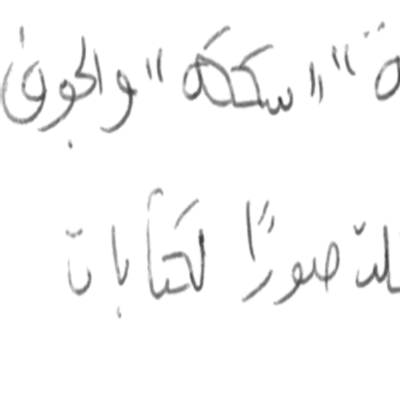 ة " "سككه" والجوف
صورًا لكتابات